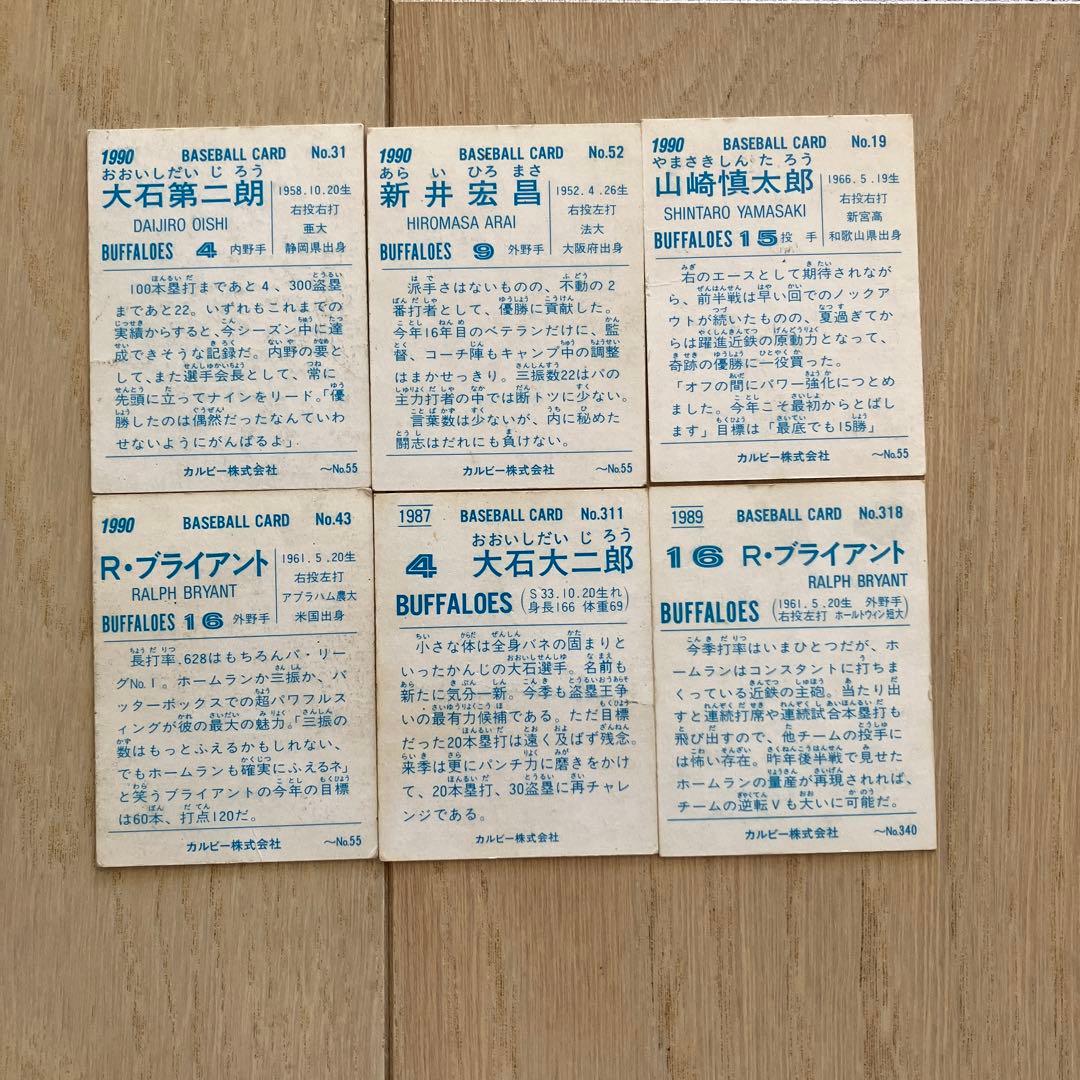 1990 BASEBALL CARD No.31
おおいしだい じ ろう
大石第二朗
DAIJIRO OISHI
BUFFALOES 4 内野手
1958.10.20生
右投右打
亜大
静岡県出身
100本塁打まであと4、300盗塁
まであと22。いずれもこれまでの
実績からすると、今シーズン中に達
成できそうな記録だ。内野の要と
して、また選手会長として、常に
先頭に立ってナインをリード。「優
勝したのは偶然だったなんていわ
せないようにがんばるよ」
カルビー株式会社 〜No.55
1990 BASEBALL CARD No.52
あら い ひろ まさ
新井宏昌
HIROMASA ARAI
BUFFALOES 9 外野手
1952.4.26生
右投左打
法大
大阪府出身
派手さはないものの、不動の2
番打者として、優勝に貢献した。
今年16年目のベテランだけに、監
督、コーチ陣もキャンプ中の調整
はまかせっきり。三振数22はパの
主力打者の中では断トツに少ない。
言葉数は少ないが、内に秘めた
闘志はだれにも負けない。
カルビー株式会社 〜No.55
1990 BASEBALL CARD No.19
やまさきしん た ろう
山崎慎太郎
SHINTARO YAMASAKI
BUFFALOES 15 投手
1966.5.19生
右投右打
新宮高
和歌山県出身
右のエースとして期待されなが
ら、前半戦は早い回でのノックア
ウトが続いたものの、夏過ぎてか
らは躍進近鉄の原動力となって、
奇跡の優勝に一役買った。
「オフの間にパワー強化につとめ
ました。今年こそ最初からとばし
ます」目標は「最底でも15勝」
カルビー株式会社 〜No.55
1990 BASEBALL CARD No.43
R・ブライアント
RALPH BRYANT
BUFFALOES 16 外野手
1961.5.20生
右投左打
アブラハム農大
米国出身
長打率.628はもちろんパ・リー
グNo.1。ホームランか三振か、バ
ッターボックスでの超パワフルス
イングが彼の最大の魅力。「三振の
数はもっとふえるかもしれない、
でもホームランも確実にふえるネ」
と笑うブライアントの今年の目標
は60本、打点120だ。
カルビー株式会社 〜No.55
1987 BASEBALL CARD No.311
おおいしだい じ ろう
4 大石大二郎
BUFFALOES (S33.10.20生れ
身長166 体重69)
小さな体は全身バネの固まりと
いったかんじの大石選手。名前も
新たに気分一新。今季も盗塁王争
いの最有力候補である。ただ目標
だった20本塁打は遠く及ばず残念。
来季は更にパンチ力に磨きをかけ
て、20本塁打、30盗塁に再チャレ
ンジである。
カルビー株式会社
1989 BASEBALL CARD No.318
16 R・ブライアント
RALPH BRYANT
BUFFALOES (1961.5.20生 外野手
右投左打 ホールトウィン短大)
今季打率はいまひとつだが、ホ
ームランはコンスタントに打ちま
くっている近鉄の主砲。当たり出
すと連続打席や連続試合本塁打も
飛び出すので、他チームの投手に
は怖い存在。昨年後半戦で見せた
ホームランの量産が再現されれば、
チームの逆転Vも大いに可能だ。
カルビー株式会社 〜No.340